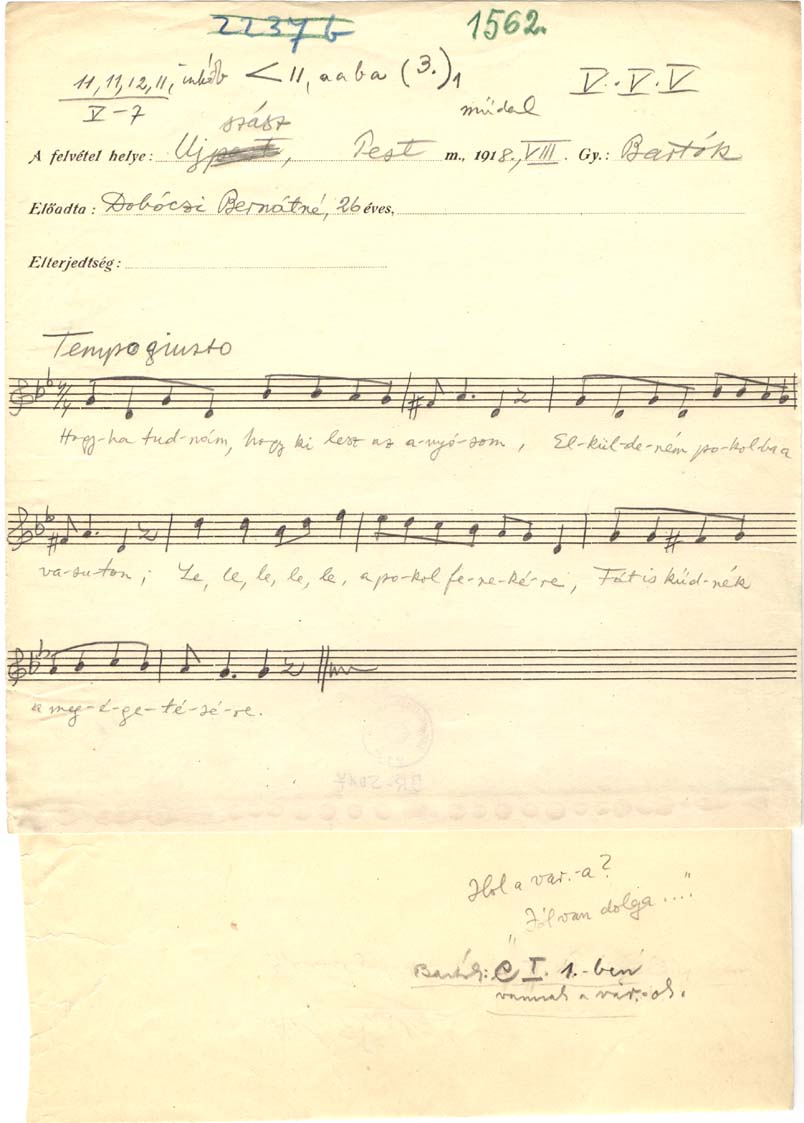 2237 b 1562.
11, 11, 12, 11, inkább < 11, a a b a (3.)1 V. . V. V
V–7 műdal
szász
A felvétel helye: Ujpest, Pest m., 1918., VIII. Gy.: Bartók
Előadta: Dobóczi Bernátné, 26 éves,
Elterjedtség:
Tempo giusto
Hogy-ha tud-nám, hogy ki lesz az a-nyó-som, El-kül-de-ném po-kol-ba a
va-su-ton; Le, le, le, le, le, a po-kol fe-ne-ké-re, Fát is küd-nék
a meg-é-ge-té-sé-re.
Hol a var.-a?
"Jól van dolga ...."
Bartók: C I. 1.-ben
vannak a vár.-ok.